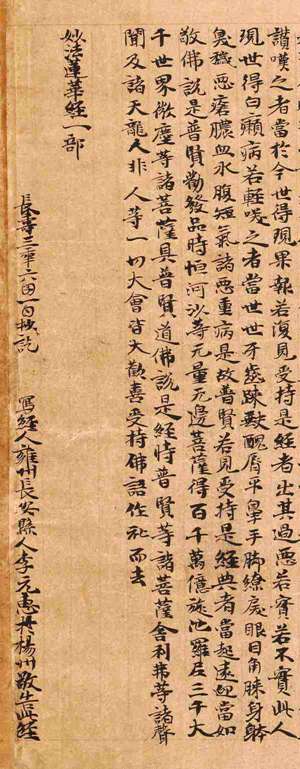 讚嘆之者當於今世得現果報若復見受持是經者出其過惡若實若不實此人
現世得白癩病若輕咲之者當世世牙齒踈缺醜脣平鼻手脚繚戾眼目角睞身躰
臭穢惡瘡膿血水腹短氣諸惡重病是故普賢若見受持是經典者當起遠迎當如
敬佛說是普賢勸發品時恒河沙等无量无邊菩薩得百千萬億旋陁羅尼三千大
千世界微塵等諸菩薩具普賢道佛說是經時普賢等諸菩薩舍利弗等諸聲
聞及諸天龍人非人等一切大會皆大歡喜受持佛語作礼而去
妙法蓮華經一部
長壽三年六月一日抄訖 寫經人雍州長安縣人李元惠於楊州敬造此經